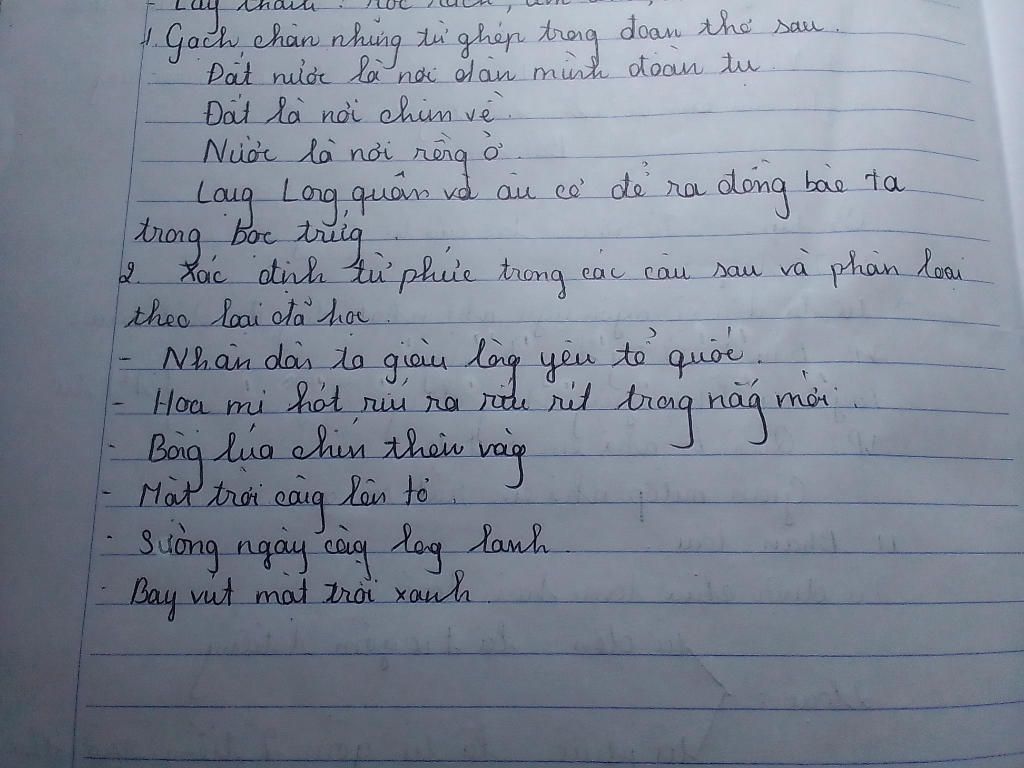 - Lấy thành:
1. Gạch chân những từ ghép trong đoạn thơ sau.
Đất nước là nơi dân mình đoàn tụ
Đất là nơi chim về
Nước là nơi rồng ở.
Lạng Long quân và âu cơ đẻ ra đồng bào ta
trong bọc trứng.
2. Xác định từ phức trong các câu sau và phân loại
theo loại đã học.
- Nhân dân ta giàu lòng yêu tổ quốc.
- Hoạ mi hót ríu ra ríu rít trong nắng mới.
- Bông lúa chín thêm vàng
- Mặt trời càng lên tỏ.
- Sương ngày càng long lanh.
- Bay vút mặt trời xanh.